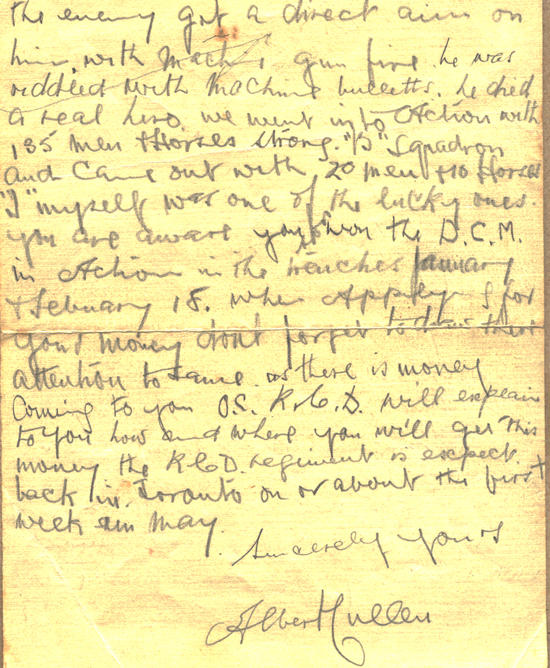 the enemy got a direct aim on
him, with Machi gun fire he was
riddled with Machine bulletts. he died
a real hero. we went into Action with
135 men & Horses strong. "B" Squadron
and Came out with 20 men & 10 Horses
"I" myself was one of the lucky ones.
you are aware won the D.C.M.
in Action in the trenches January
& Febuary 18. when Applying for
your money dont forget to draw their
attention to same as there is money
Coming to you O.S. R.C.D. will explain
to you how and where you will get this
money the R.C.D. regiment is expect
back in Toronto on or about the first
week in May
Sincerely yours
Albert Cullen